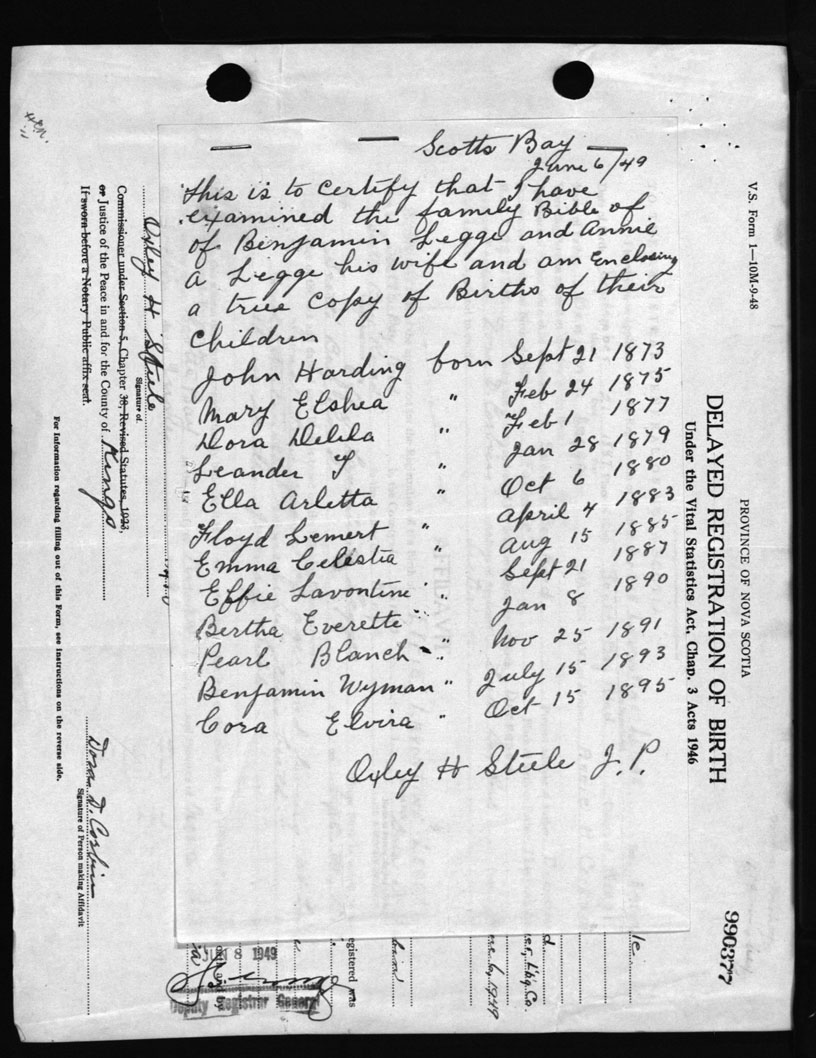 Scotts Bay
June 6/49
This is to certify that I have
examined the family Bible of
of Benjamin Legge and Annie
A Legge his wife and am Enclosing
a true Copy of Births of their
Children
John Harding born Sept 21 1873
Mary Elshea " Feb 24 1875
Dora Delila " Feb 1 1877
Leander Y " Jan 28 1879
Ella Arletta " Oct 6 1880
Floyd Lemert " April 4 1883
Emma Celestia " Aug 15 1885
Effie Lavontine " Sept 21 1887
Bertha Everette " Jan 8 1890
Pearl Blanch " Nov 25 1891
Benjamin Wyman " July 15 1893
Cora Elvira " Oct 15 1895
Oxley H Steele J.P.
V.S. Form 1—10M-9-48
PROVINCE OF NOVA SCOTIA
DELAYED REGISTRATION OF BIRTH
Under the Vital Statistics Act, Chap. 3 Acts 1946
990377
egistered was
JUN 8 1949
Deputy Registrar General
Oxley H Steele
Signature of.
Commissioner under Section 5, Chapter 38, Revised Statutes, 1923,
or Justice of the Peace in and for the County of Kings
If sworn before a Notary Public affix seal.
For information regarding filling out of this Form, see instructions on the reverse side.
Dora D. Corbin
Signature of Person making Affidavit